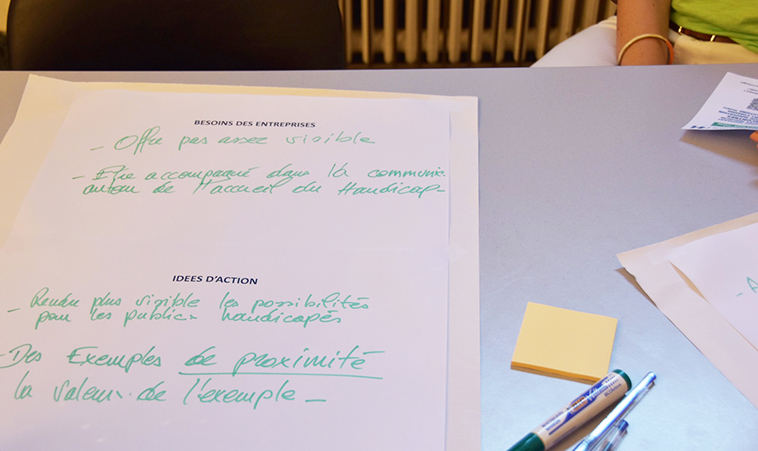 BESOINS DES ENTREPRISES
- Offre pas assez visible
- Etre accompagné dans la communic
autour de l'accueil du Handicap -
IDEES D'ACTION
- Rendre plus visible les possibilités
pour les publics handicapés
- Des Exemples de proximité
la valeur de l'exemple -